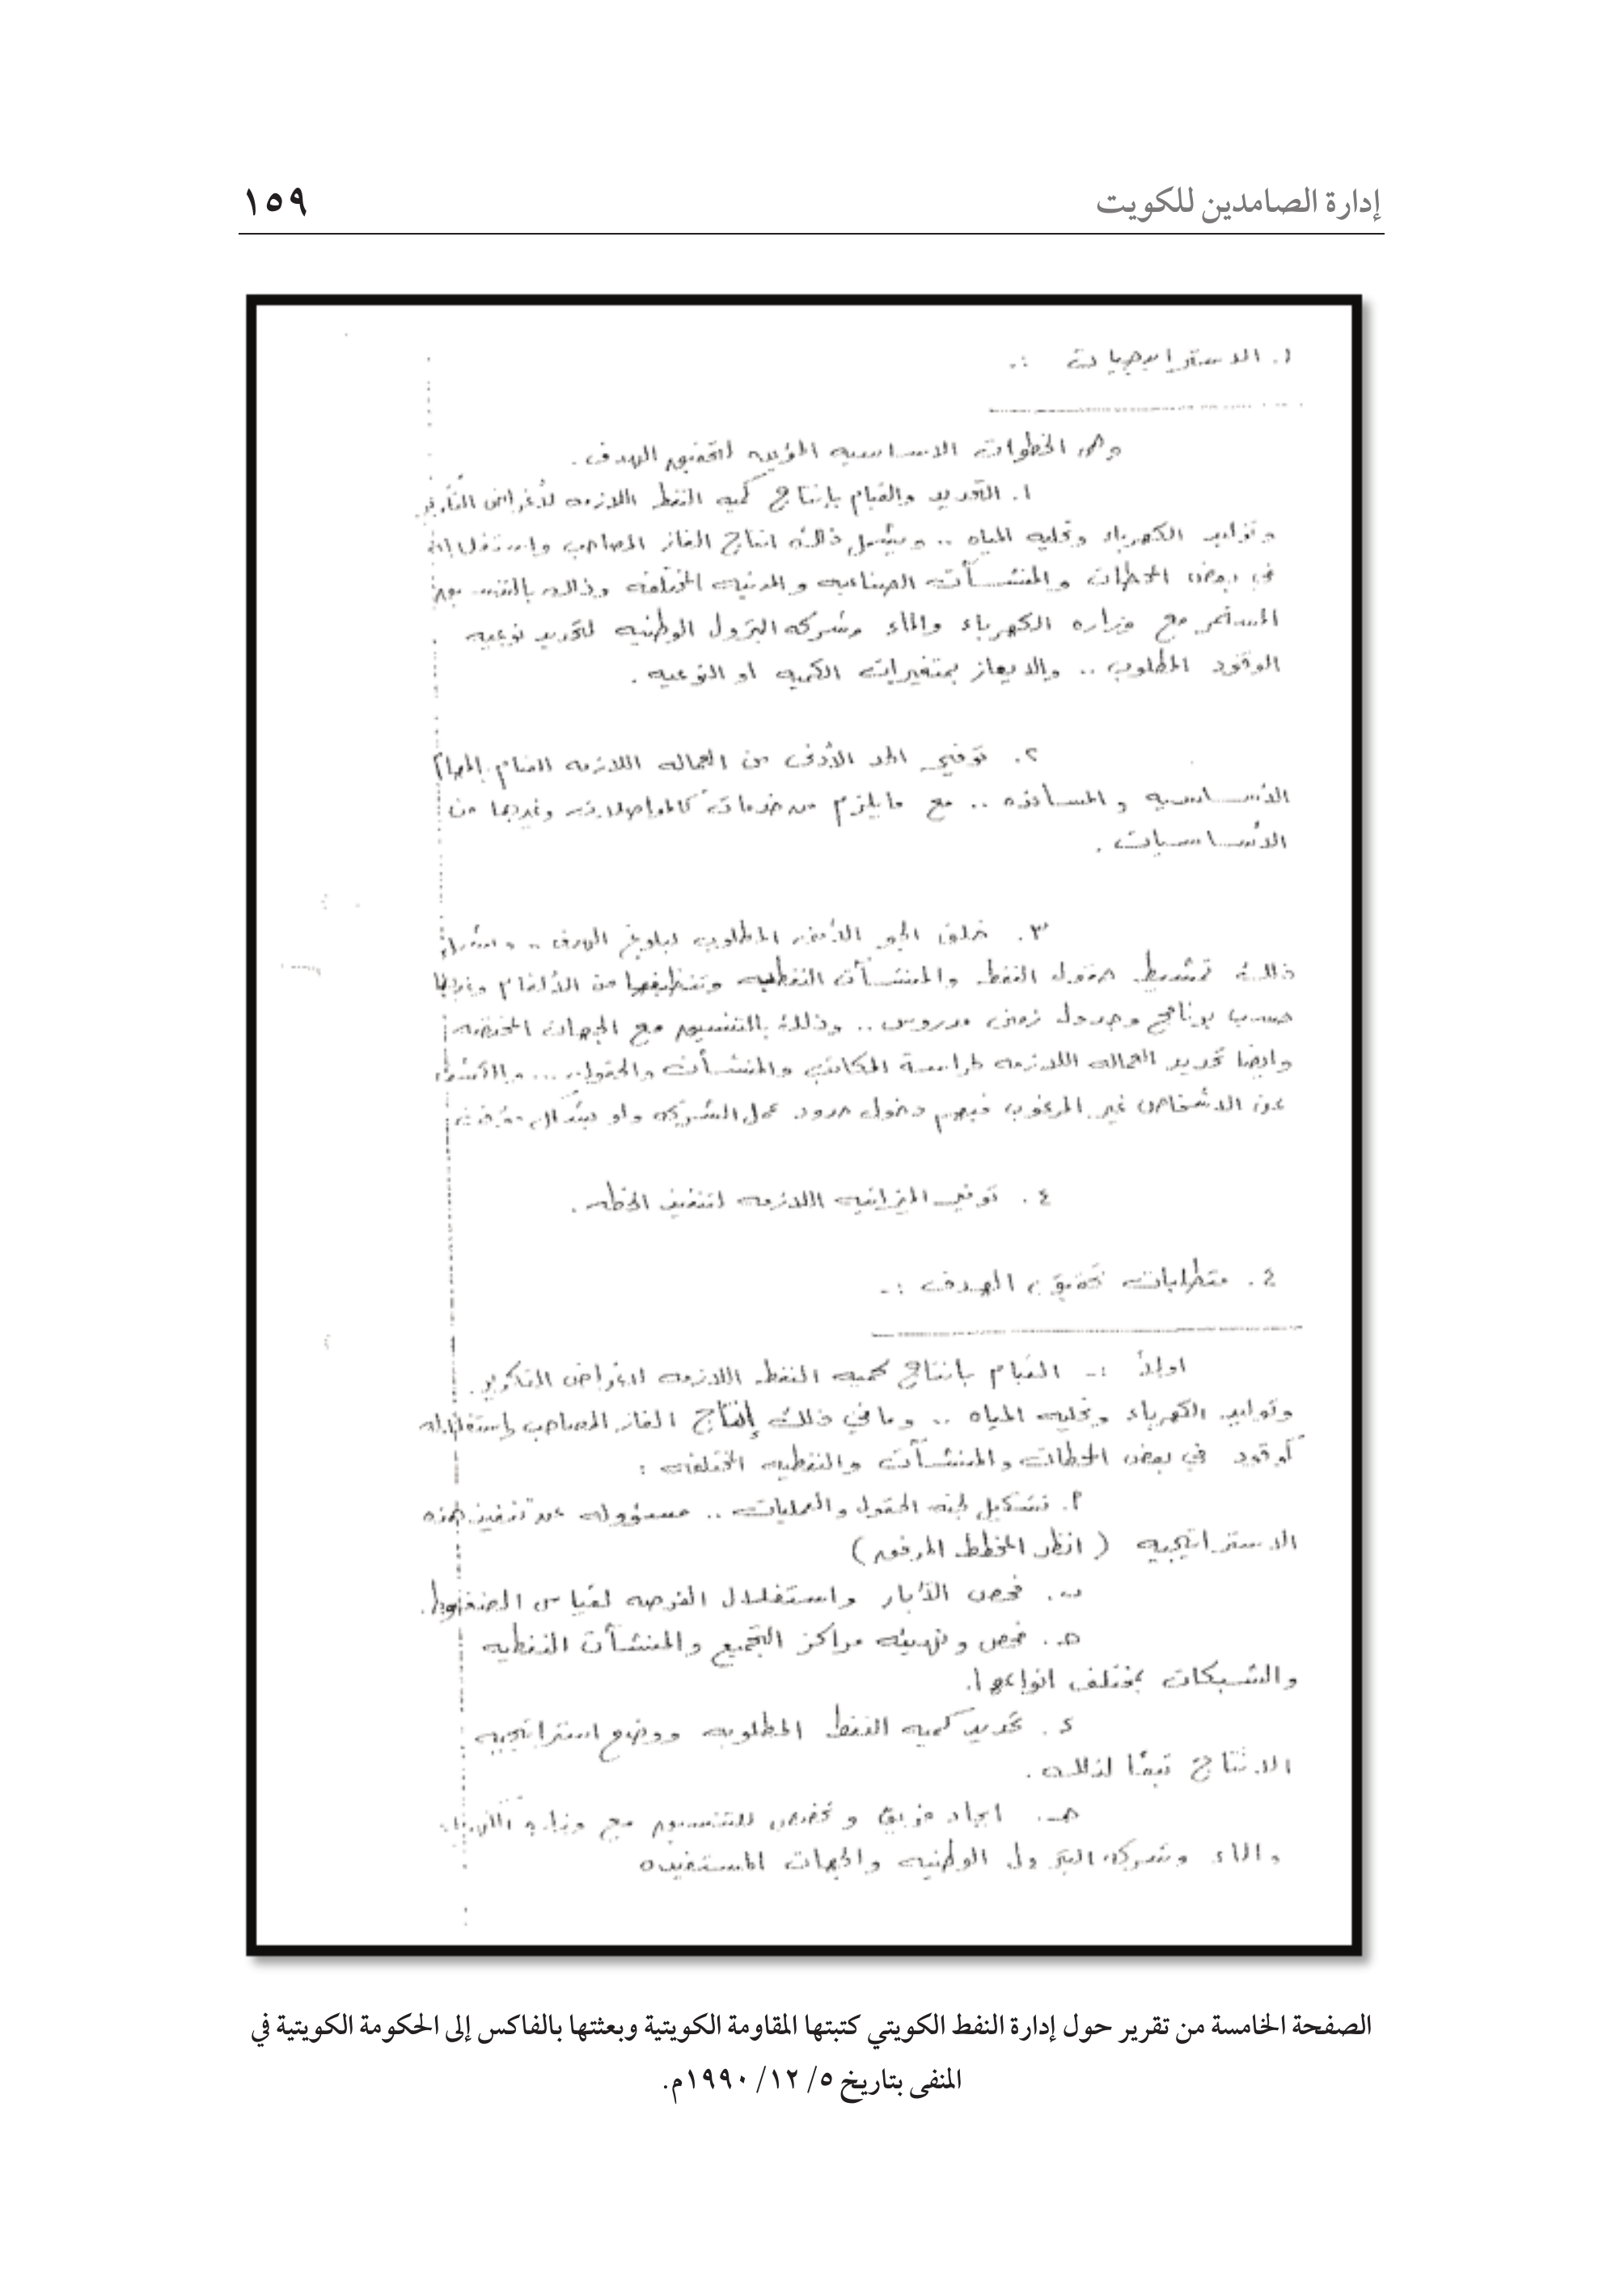 إدارة الصامدين للكويت
١٥٩
الاستراتيجيات :-
وهي الخطوات الاساسيه المؤديه لتحقيق الهدف .
١. التحديد والقيام بإنتاج كميه النفط اللازمه لأغراض التكرير
وتوليد الكهرباء وتحليه المياه .. ويشمل ذلك انتاج الغاز المصاحب واستغلاله
في بعض المحطات والمنشآت الصناعيه والمدنيه المختلفه وذلك بالتنسيق
المستمر مع وزاره الكهرباء والماء وشركه البترول الوطنيه لتحديد نوعيه
الوقود المطلوب .. والايعاز بمتغيرات الكميه او النوعيه .
٢. توفير الحد الأدنى من العماله اللازمه للقيام بالمهام
الأساسيه والمسانده .. مع مايلزم من خدمات كالمواصلات وغيرها من
الأساسيات .
٣. خلق الجو الأمني المطلوب لبلوغ الهدف ..
ذلك تمشيط حقول النفط والمنشآت النفطيه وتنظيفها من الألغام وغيرها
حسب برنامج وجدول زمني مدروس .. وذلك بالتنسيق مع الجهات المختصه
وايضا تحديد العماله اللازمه لحراسة المكاتب والمنشآت والحقول ... والكشف
عن الاشخاص غير المرغوب فيهم دخول حدود عمل الشركه ولو بشكل مؤقت
٤. توفير الميزانيه اللازمه لتنفيذ الخطه .
٤. متطلبات تحقيق الهدف :-
اولاً :- القيام بانتاج كميه النفط اللازمه لاغراض التكرير
وتوليد الكهرباء وتحليه المياه .. وما في ذلك إنتاج الغاز المصاحب واستغلاله
كوقود في بعض المحطات والمنشآت والنفطيه المختلفه :
أ. تشكيل لجنه الحقول والعمليات .. مسؤوله عن تنفيذ هذه
الاستراتيجيه ( انظر المخطط المرفق )
ب. فحص الآبار واستغلال الفرصه لقياس الضغوط.
جـ. فحص وتهيئه مراكز التجميع والمنشآت النفطيه
والشبكات بمختلف انواعها.
د. تحديد كميه النفط المطلوبه ووضع استراتيجيه
الانتاج تبعًا لذلك .
هـ. ايجاد فريق وتخصص للتنسيق مع وزاره الكهرباء
والماء وشركه البترول الوطنيه والجهات المستفيده
الصفحة الخامسة من تقرير حول إدارة النفط الكويتي كتبتها المقاومة الكويتية وبعثتها بالفاكس إلى الحكومة الكويتية في
المنفى بتاريخ ٥/ ١٢/ ١٩٩٠م.